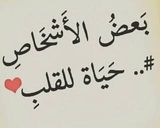 بَعضُ الأَشخَاصِ
#.. حَيَاة للقلبِ❤